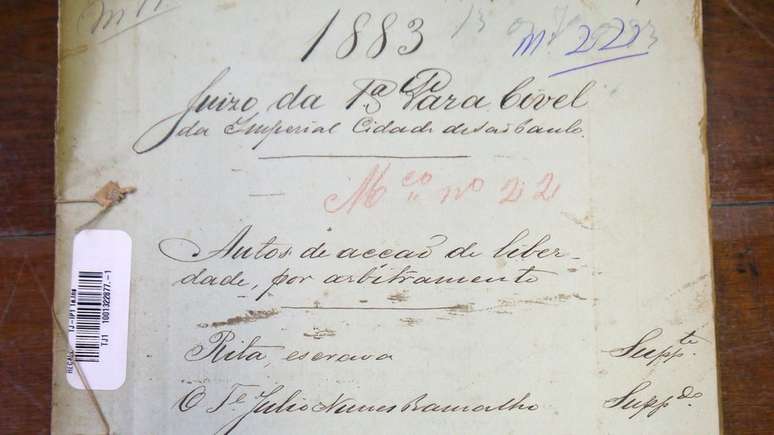 1883
Nº 22
Juizo da 1ª Vara Civel
da Imperial Cidade de São Paulo.
Mço nº 22
Autos de acção de liber-
dade, por arbitramento
Rita, escrava Suppte.
O Te. Julio Nunes Ramalho Suppdo.
TJ1 1001322877.-1